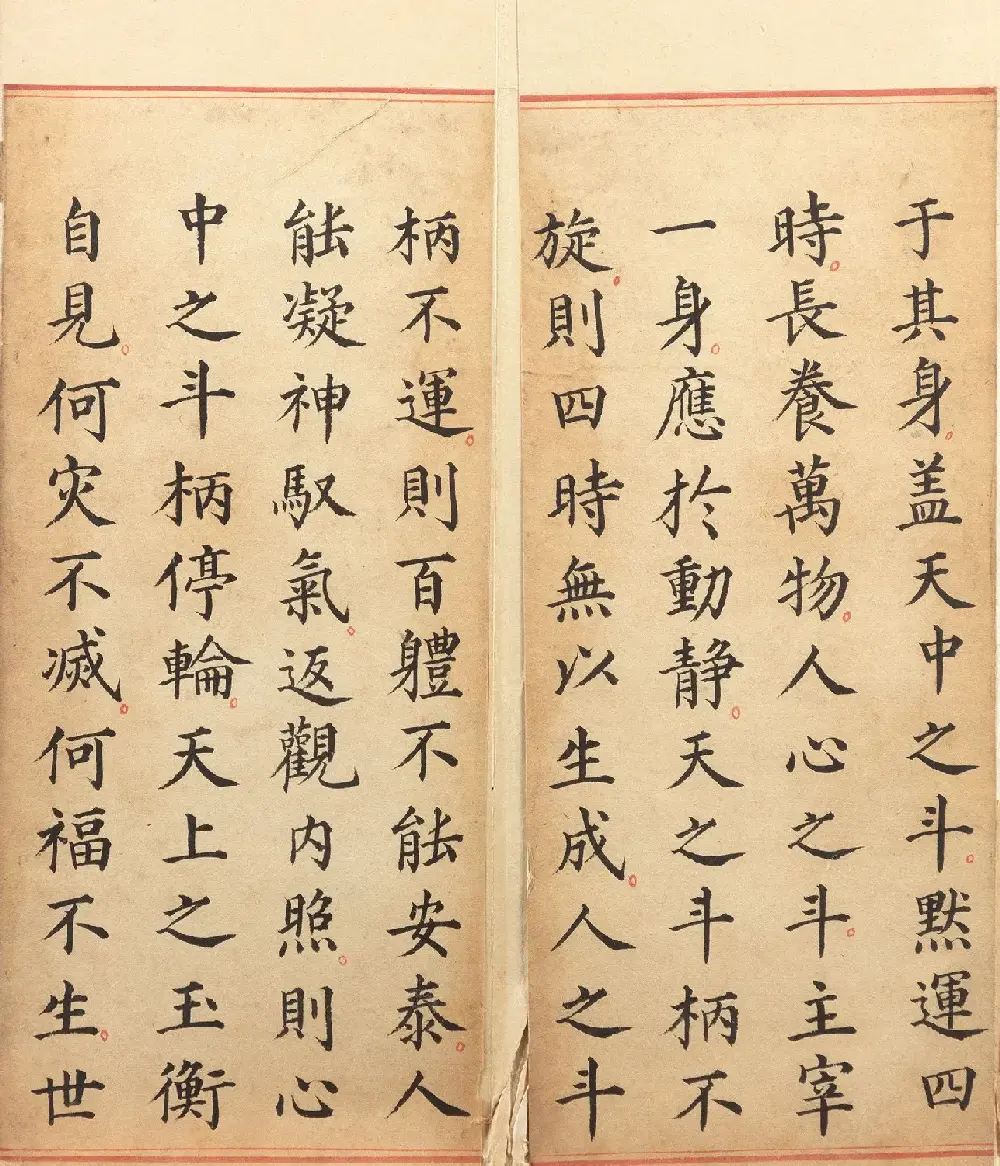 于其身盖天中之斗默運四
時長養萬物人心之斗主宰
一身應於動靜天之斗柄不
旋則四時無以生成人之斗
柄不運則百軆不能安泰人
能凝神馭氣返觀內照則心
中之斗柄停輪天上之玉衡
自見何灾不滅何福不生世